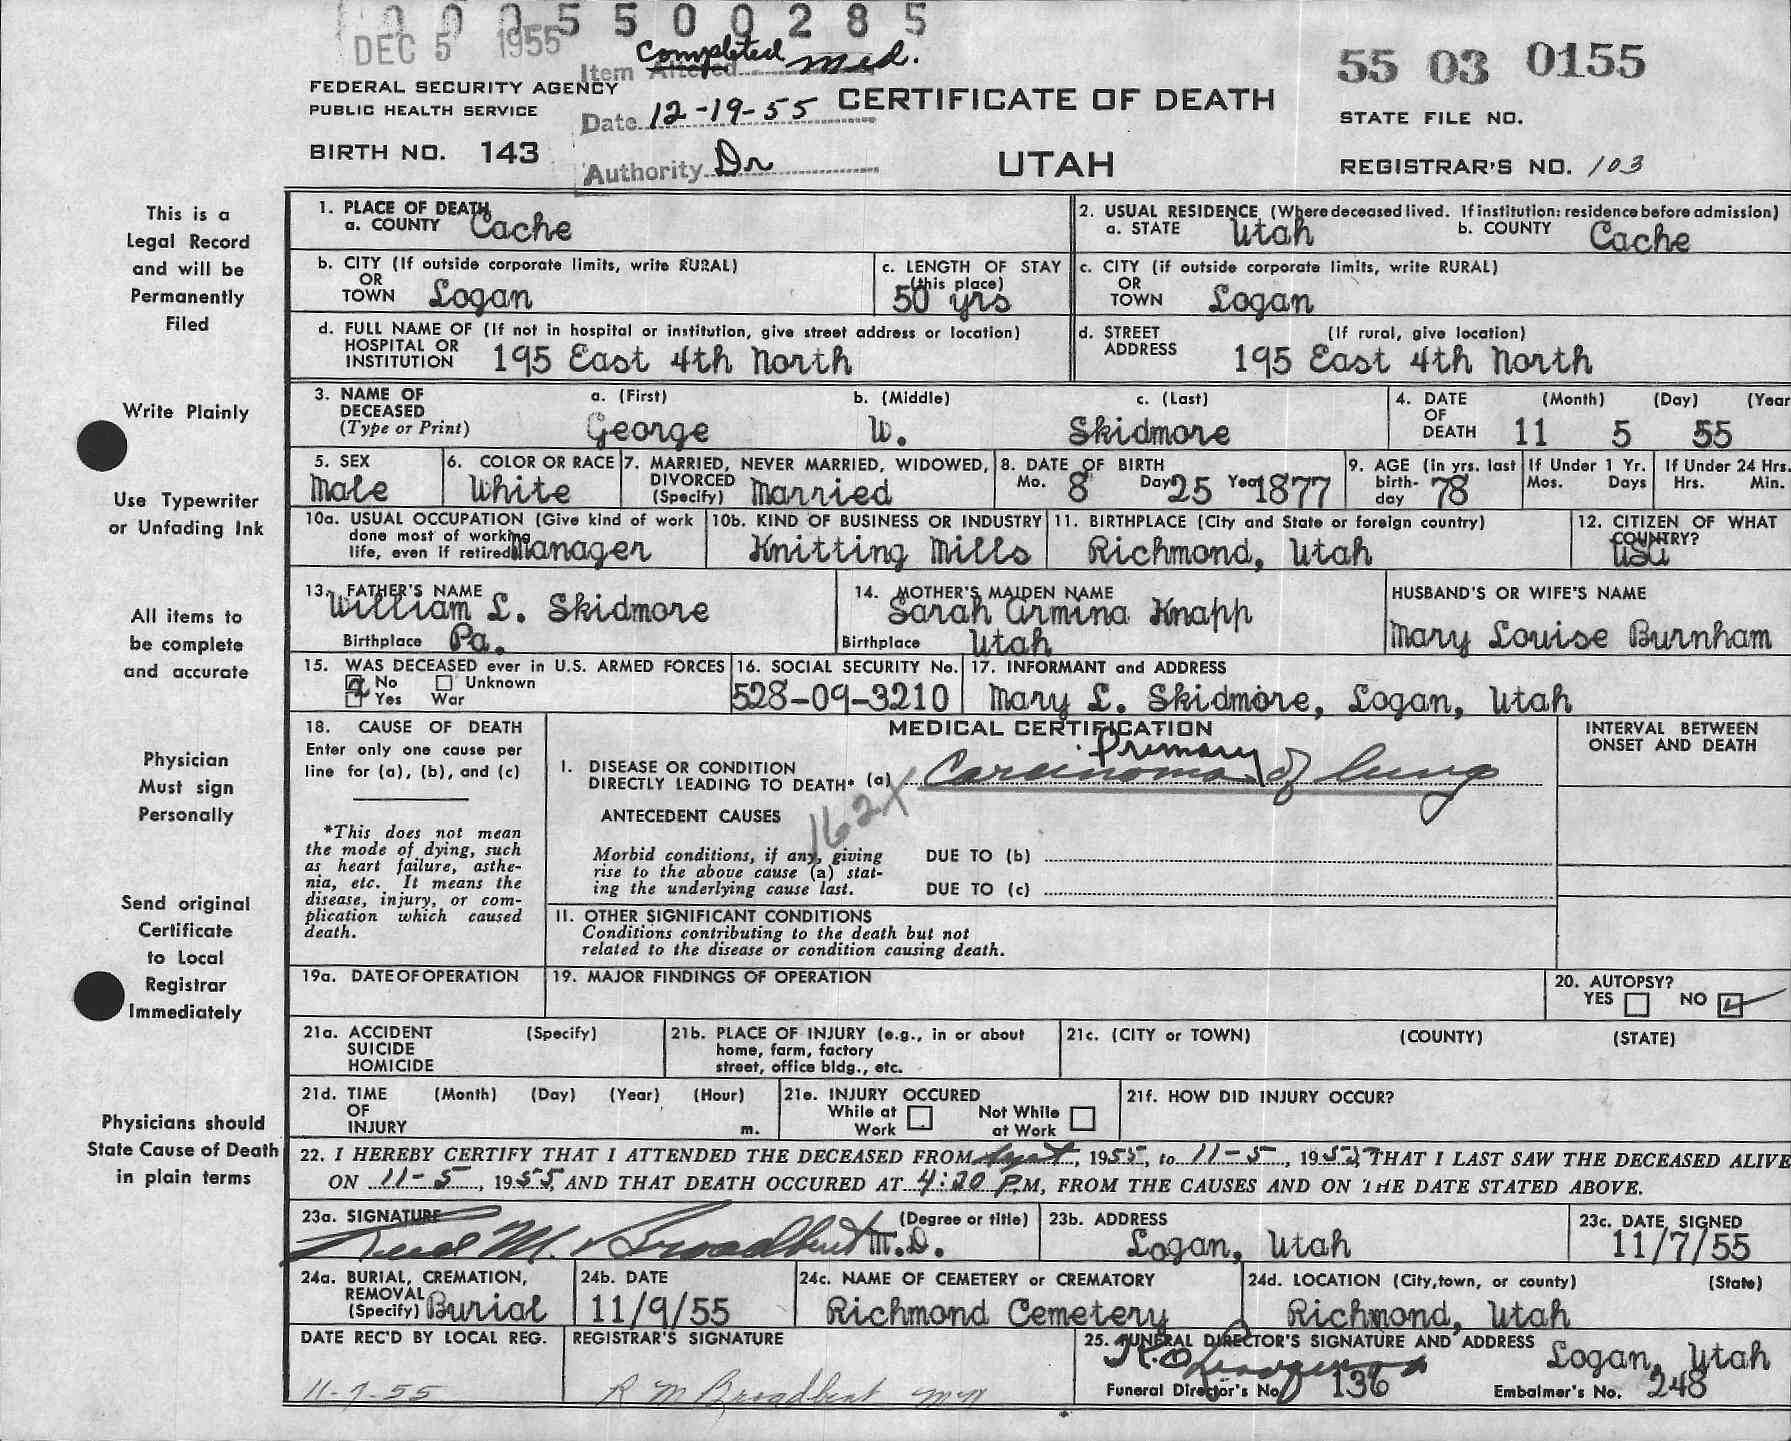 0005500285
DEC 5 1955
Completed Med.
Item Altered
55 03 0155
FEDERAL SECURITY AGENCY
PUBLIC HEALTH SERVICE
Date 12-19-55
CERTIFICATE OF DEATH
STATE FILE NO.
BIRTH NO. 143
Authority Dr
UTAH
REGISTRAR'S NO. 103
This is a
Legal Record
and will be
Permanently
Filed
Write Plainly
Use Typewriter
or Unfading Ink
All items to
be complete
and accurate
Physician
Must sign
Personally
Send original
Certificate
to Local
Registrar
Immediately
Physicians should
State Cause of Death
in plain terms
1. PLACE OF DEATH
a. COUNTY Cache
2. USUAL RESIDENCE (Where deceased lived. If institution: residence before admission)
a. STATE Utah b. COUNTY Cache
b. CITY (If outside corporate limits, write RURAL)
OR
TOWN Logan
c. LENGTH OF STAY
(this place)
50 yrs
c. CITY (if outside corporate limits, write RURAL)
OR
TOWN Logan
d. FULL NAME OF (If not in hospital or institution, give street address or location)
HOSPITAL OR
INSTITUTION 195 East 4th North
d. STREET (If rural, give location)
ADDRESS 195 East 4th North
3. NAME OF
DECEASED
(Type or Print)
a. (First) b. (Middle) c. (Last)
George W. Skidmore
4. DATE (Month) (Day) (Year
OF
DEATH 11 5 55
5. SEX
Male
6. COLOR OR RACE
White
7. MARRIED, NEVER MARRIED, WIDOWED,
DIVORCED
(Specify) Married
8. DATE OF BIRTH
Mo. 8 Day 25 Year 1877
9. AGE (in yrs. last
birth-
day 78
If Under 1 Yr.
Mos. Days
If Under 24 Hrs.
Hrs. Min.
10a. USUAL OCCUPATION (Give kind of work
done most of working
life, even if retired) Manager
10b. KIND OF BUSINESS OR INDUSTRY
Knitting Mills
11. BIRTHPLACE (City and State or foreign country)
Richmond, Utah
12. CITIZEN OF WHAT
COUNTRY?
USA
13. FATHER'S NAME
William L. Skidmore
Birthplace Pa.
14. MOTHER'S MAIDEN NAME
Sarah Armina Knapp
Birthplace Utah
HUSBAND'S OR WIFE'S NAME
Mary Louise Burnham
15. WAS DECEASED ever in U.S. ARMED FORCES
No Unknown
Yes War
16. SOCIAL SECURITY No.
528-09-3210
17. INFORMANT and ADDRESS
Mary L. Skidmore, Logan, Utah
18. CAUSE OF DEATH
Enter only one cause per
line for (a), (b), and (c)
*This does not mean
the mode of dying, such
as heart failure, asthe-
nia, etc. It means the
disease, injury, or com-
plication which caused
death.
MEDICAL CERTIFICATION
INTERVAL BETWEEN
ONSET AND DEATH
Primary
I. DISEASE OR CONDITION
DIRECTLY LEADING TO DEATH* (a) Carcinoma of lung
162X
ANTECEDENT CAUSES
Morbid conditions, if any, giving
rise to the above cause (a) stat-
ing the underlying cause last.
DUE TO (b)
DUE TO (c)
II. OTHER SIGNIFICANT CONDITIONS
Conditions contributing to the death but not
related to the disease or condition causing death.
19a. DATE OF OPERATION
19. MAJOR FINDINGS OF OPERATION
20. AUTOPSY?
YES NO
21a. ACCIDENT (Specify)
SUICIDE
HOMICIDE
21b. PLACE OF INJURY (e.g., in or about
home, farm, factory
street, office bldg., etc.
21c. (CITY or TOWN) (COUNTY) (STATE)
21d. TIME (Month) (Day) (Year) (Hour)
OF
INJURY m.
21e. INJURY OCCURED
While at Work Not While at Work
21f. HOW DID INJURY OCCUR?
22. I HEREBY CERTIFY THAT I ATTENDED THE DECEASED FROM Sept, 1955, to 11-5, 1955, THAT I LAST SAW THE DECEASED ALIVE
ON 11-5, 1955, AND THAT DEATH OCCURED AT 4:20 P.M, FROM THE CAUSES AND ON THE DATE STATED ABOVE.
23a. SIGNATURE (Degree or title)
M. Broadbent M.D.
23b. ADDRESS
Logan, Utah
23c. DATE SIGNED
11/7/55
24a. BURIAL, CREMATION,
REMOVAL
(Specify) Burial
24b. DATE
11/9/55
24c. NAME OF CEMETERY or CREMATORY
Richmond Cemetery
24d. LOCATION (City, town, or county) (State)
Richmond, Utah
DATE REC'D BY LOCAL REG.
11-7-55
REGISTRAR'S SIGNATURE
R M Broadbent
25. FUNERAL DIRECTOR'S SIGNATURE AND ADDRESS
Logan, Utah
Funeral Director's No. 136 Embalmer's No. 248